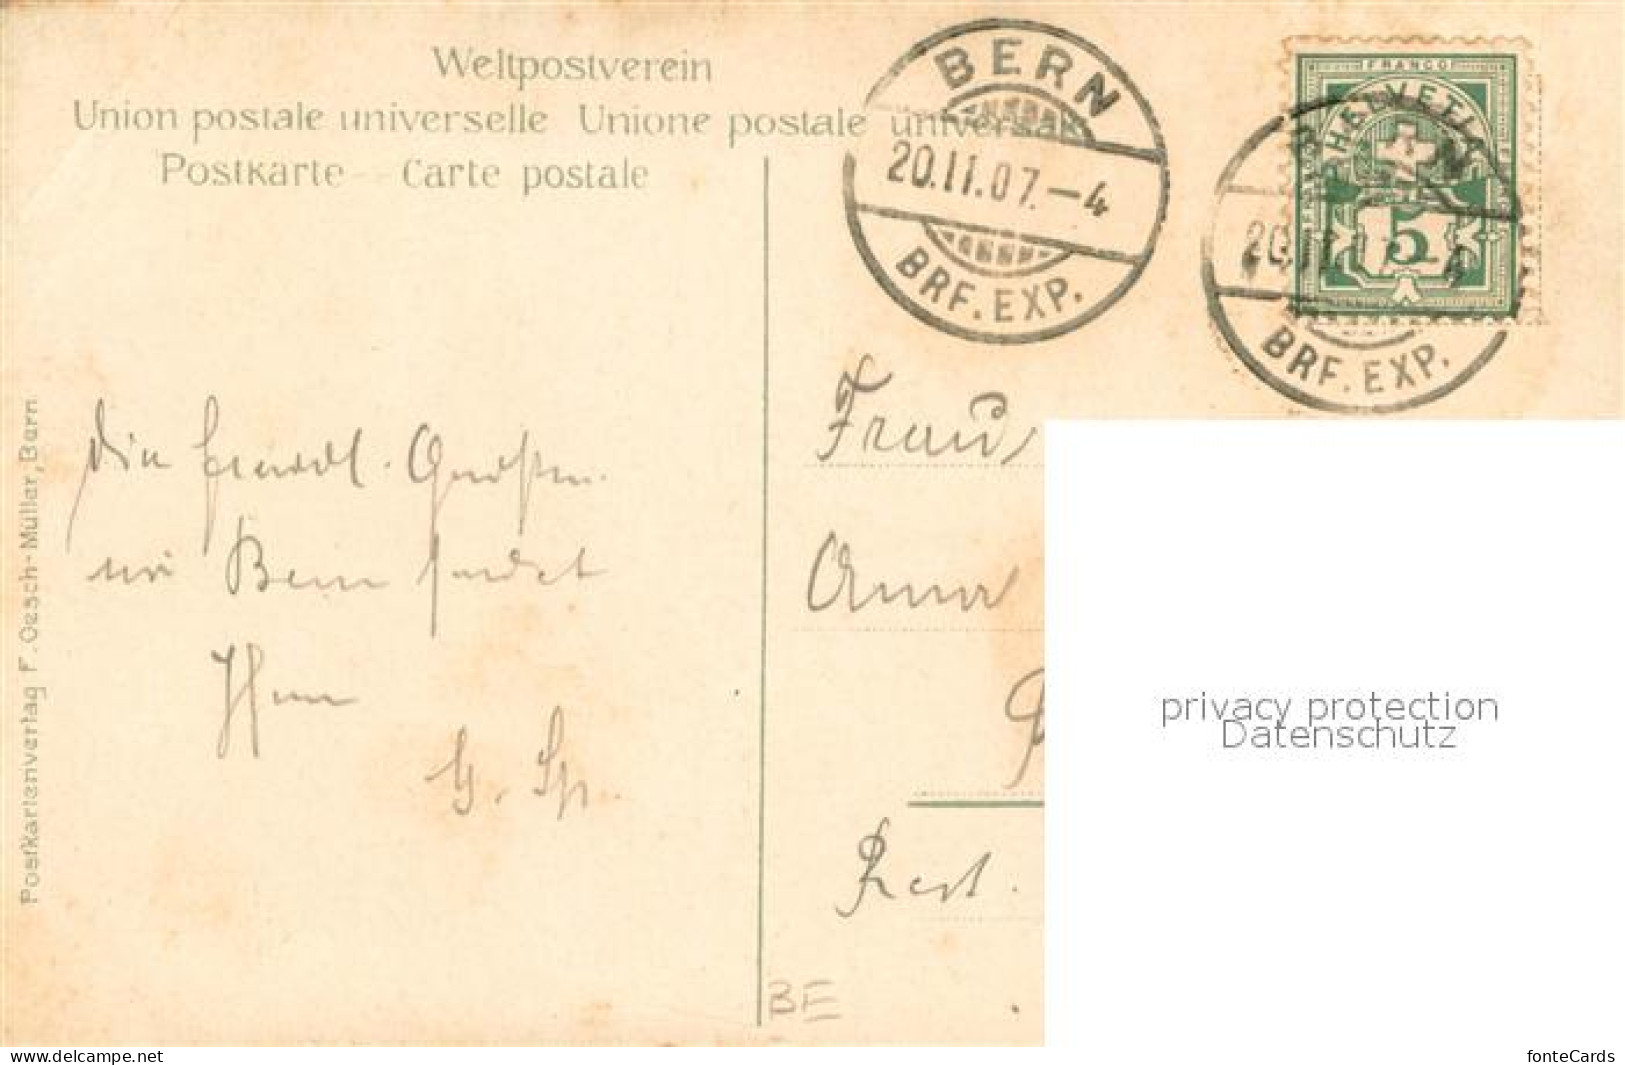 Weltpostverein
Union postale universelle Unione postale universale
Postkarte – Carte postale
BERN
20.II.07.–4
BRF. EXP.
FRANCO
HELVETIA
5
BRF. EXP.
Postkartenverlag F. Oesch-Müller, Bern
Die freundl.
Bern sendet
G. Sp.
Frau
Anna
Rest.
BE
privacy protection
Datenschutz
www.delcampe.net
fonteCards